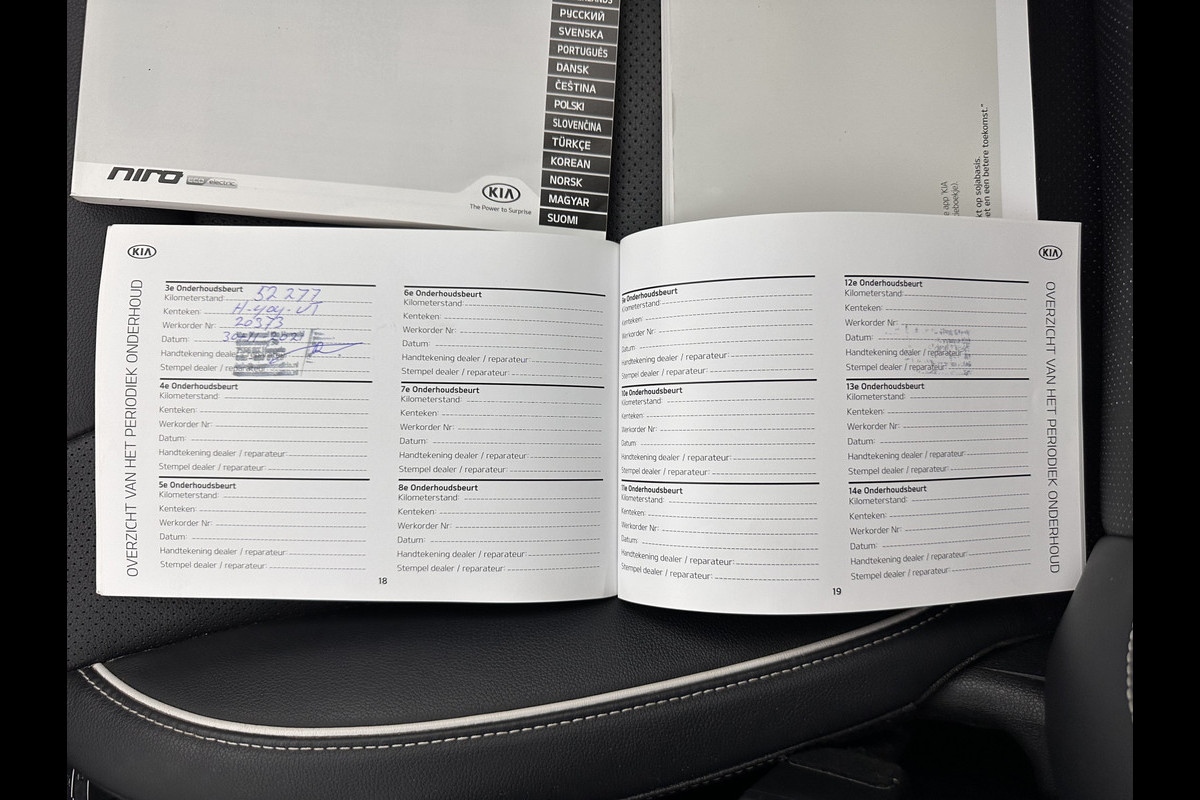 РУССКИЙ
SVENSKA
PORTUGUÊS
DANSK
ČEŠTINA
POLSKI
SLOVENČINA
TÜRKÇE
KOREAN
NORSK
MAGYAR
SUOMI
niro electric
KIA
The Power to Surprise
e app 'KIA
kt op sojabasis.
et en een betere toekomst."
KIA
OVERZICHT VAN HET PERIODIEK ONDERHOUD
3e Onderhoudsbeurt
Kilometerstand: 52 277
Kenteken:
Werkorder Nr: 20373
Datum:
Handtekening deale
Stempel dealer / re
4e Onderhoudsbeurt
Kilometerstand:
Kenteken:
Werkorder Nr:
Datum:
Handtekening dealer / reparateur:
Stempel dealer / reparateur:
5e Onderhoudsbeurt
Kilometerstand:
Kenteken:
Werkorder Nr:
Datum:
Handtekening dealer / reparateur:
Stempel dealer / reparateur:
6e Onderhoudsbeurt
Kilometerstand:
Kenteken:
Werkorder Nr:
Datum:
Handtekening dealer / reparateur:
Stempel dealer / reparateur:
7e Onderhoudsbeurt
Kilometerstand:
Kenteken:
Werkorder Nr:
Datum:
Handtekening dealer / reparateur:
Stempel dealer / reparateur:
8e Onderhoudsbeurt
Kilometerstand:
Kenteken:
Werkorder Nr:
Datum:
Handtekening dealer / reparateur:
Stempel dealer / reparateur:
18
9e Onderhoudsbeurt
Kilometerstand:
Kenteken:
Werkorder Nr:
Datum:
Handtekening dealer / reparateur:
Stempel dealer / reparateur:
10e Onderhoudsbeurt
Kilometerstand:
Kenteken:
Werkorder Nr:
Datum:
Handtekening dealer / reparateur:
Stempel dealer / reparateur:
11e Onderhoudsbeurt
Kilometerstand:
Kenteken:
Werkorder Nr:
Datum:
Handtekening dealer / reparateur:
Stempel dealer / reparateur:
12e Onderhoudsbeurt
Kilometerstand:
Kenteken:
Werkorder Nr:
Datum:
Handtekening dealer / reparateur:
Stempel dealer / reparateur:
13e Onderhoudsbeurt
Kilometerstand:
Kenteken:
Werkorder Nr:
Datum:
Handtekening dealer / reparateur:
Stempel dealer / reparateur:
14e Onderhoudsbeurt
Kilometerstand:
Kenteken:
Werkorder Nr:
Datum:
Handtekening dealer / reparateur:
Stempel dealer / reparateur:
19
KIA
OVERZICHT VAN HET PERIODIEK ONDERHOUD